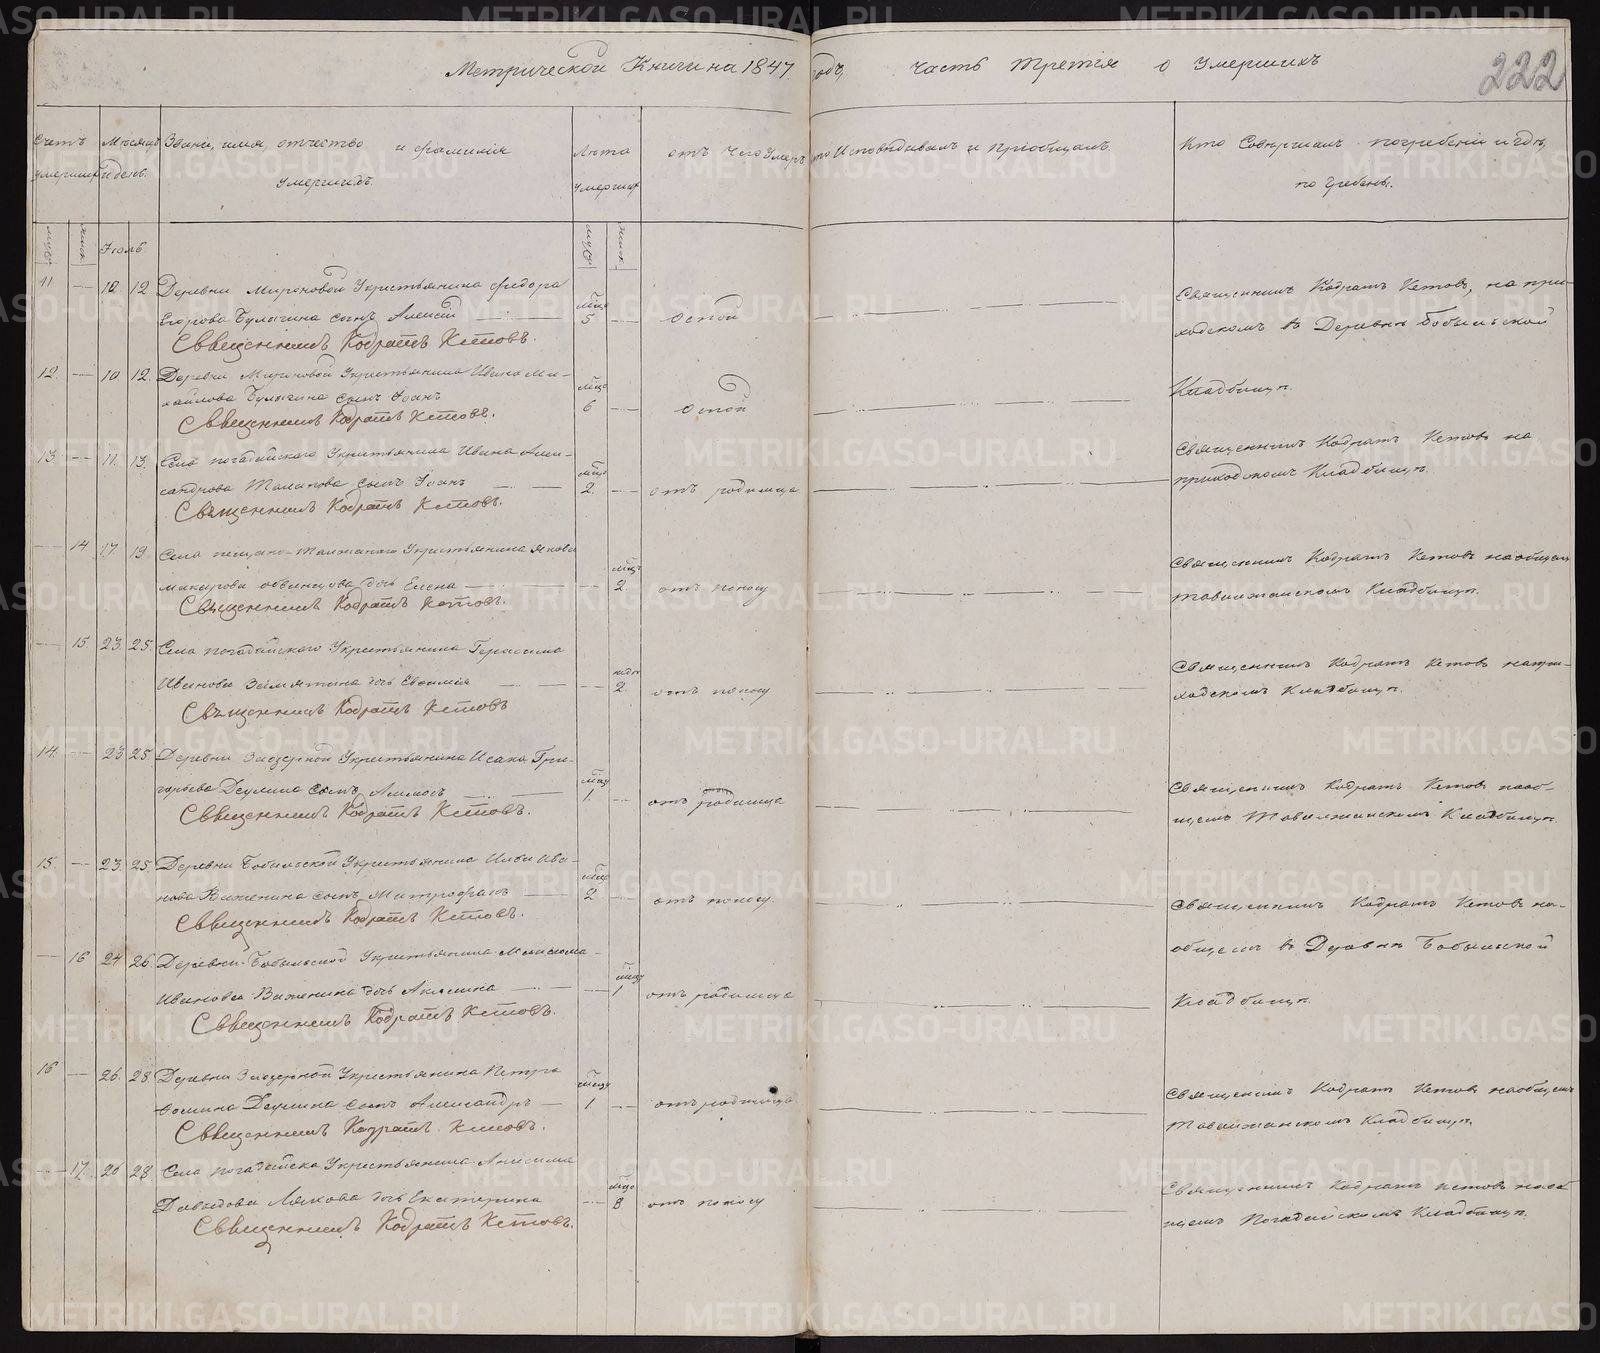 Метрической Книги на 1847 годъ, часть третія о умершихъ
222
Счетъ умершихъ
Мѣсяцъ и день.
Званіе, имя, отчество и фамилія умершихъ.
Лѣта умершихъ
отъ чего умеръ
кто Исповѣдывалъ и пріобщалъ.
Кто Совершалъ погребеніе и гдѣ погребены.
муж. жен. Іюль муж. жен.
11 — 10 12 Деревни Мироновой Укрестьянина Федора
Егорова Булыгина сынъ Алексѣй — мѣся 5 — Оспой
Священникъ Кодратъ Кетовъ.
Священникъ Кодратъ Кетовъ, на при-
ходскомъ въ Деревнѣ Бобыльской
Кладбищѣ.
12. — 10. 12. Деревни Мироновой Укрестьянина Ивана Ми-
хайлова Булыгина сынъ Іоанъ мѣся 6 — Оспой
Священникъ Кодратъ Кетовъ.
13. — 11. 13. Села погадайского Укрестьянина Ивана Алек-
сандрова сынъ Іоанъ — мѣся 2. — отъ родимца
Священникъ Кодратъ Кетовъ.
Священникъ Кодратъ Кетовъ на
приходскомъ Кладбищѣ.
— 14 17. 19. Села Укрестьянина Якова
Макарова дочь Елена — мѣся 2. отъ поносу
Священникъ Кодратъ Кетовъ.
Священникъ Кодратъ Кетовъ на общем
тавалжанскомъ Кладбищѣ.
— 15 23. 25. Села погадайского Укрестьянина Герасима
Иванова Замятина дочь Евфимія — 2. отъ поносу
Священникъ Кодратъ Кетовъ
Священникъ Кодратъ Кетовъ на при-
ходскомъ Кладбищѣ.
14. — 23 25. Деревни Заозерной Укрестьянина Исака Гри-
горьева Деулина сынъ — мѣся 1. — отъ родимца
Священникъ Кодратъ Кетовъ.
Священникъ Кодратъ Кетовъ на об-
щемъ Тавалжанскомъ Кладбищѣ.
15. — 23. 25. Деревни Бобыльской Укрестьянина Ильи Ива-
нова Важенина сынъ Митрофанъ — мѣся 2 — отъ поносу.
Священникъ Кодратъ Кетовъ.
Священникъ Кодратъ Кетовъ на-
общемъ въ Деревнѣ Бобыльской
Кладбищѣ.
— 16 24 26. Деревни Бобыльской Укрестьянина
Иванова Важенина дочь Акилина — мѣся 1 отъ родимца
Священникъ Кодратъ Кетовъ.
16 — 26. 28. Деревни Заозерной Укрестьянина Петра
Фомина Деулина сынъ Александръ — мѣся 1. — отъ родимца
Священникъ Кодратъ Кетовъ.
Священникъ Кодратъ Кетовъ на общемъ
Тавалжанскомъ Кладбищѣ.
— 17. 26 28 Села погадайска Укрестьянина Анисима
Давыдова дочь Екатерина — мѣся 8 отъ поносу
Священникъ Кодратъ Кетовъ.
Священникъ Кодратъ Кетовъ на об
щемъ Погадайскомъ Кладбищѣ.
METRIKI.GASO-URAL.RU